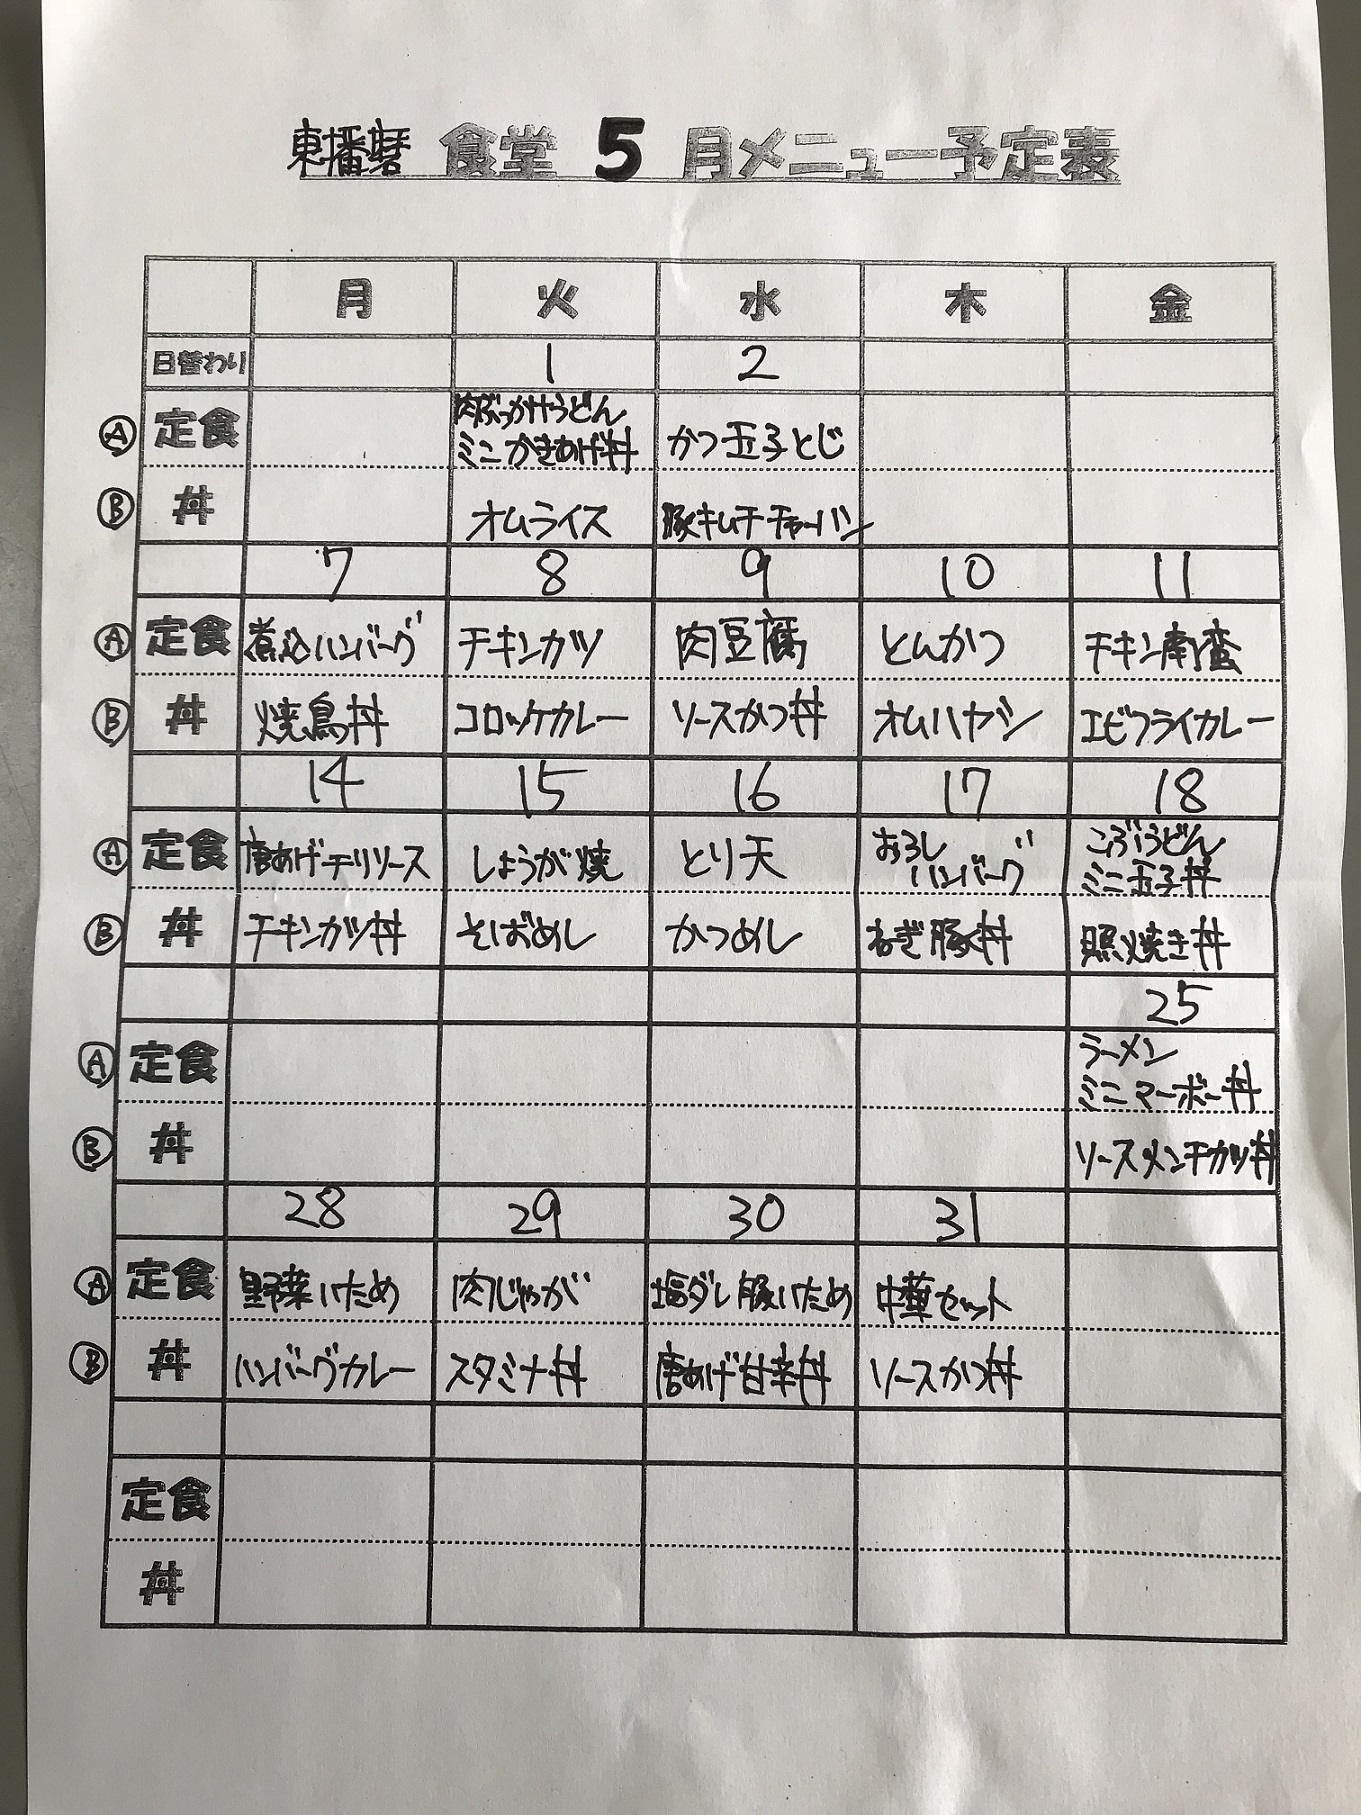 東播磨 食堂 5 月メニュー予定表
月 火 水 木 金
日替わり 1 2
Ⓐ 定食 肉ぶっかけうどん ミニかきあげ丼 かつ玉子とじ
Ⓑ 丼 オムライス 豚キムチチャーハン
7 8 9 10 11
Ⓐ 定食 煮込ハンバーグ チキンカツ 肉豆腐 とんかつ チキン南蛮
Ⓑ 丼 焼鳥丼 コロッケカレー ソースかつ丼 オムハヤシ エビフライカレー
14 15 16 17 18
Ⓐ 定食 唐あげチリソース しょうが焼 とり天 おろしハンバーグ こぶうどん ミニ玉子丼
Ⓑ 丼 チキンカツ丼 そばめし かつめし ねぎ豚丼 照焼き丼
25
Ⓐ 定食 ラーメン ミニマーボー丼
Ⓑ 丼 ソースメンチカツ丼
28 29 30 31
Ⓐ 定食 野菜いため 肉じゃが 塩ダレ豚いため 中華セット
Ⓑ 丼 ハンバーグカレー スタミナ丼 唐あげ甘辛丼 ソースかつ丼
定食
丼